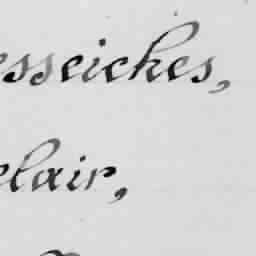 esseiches,
clair,